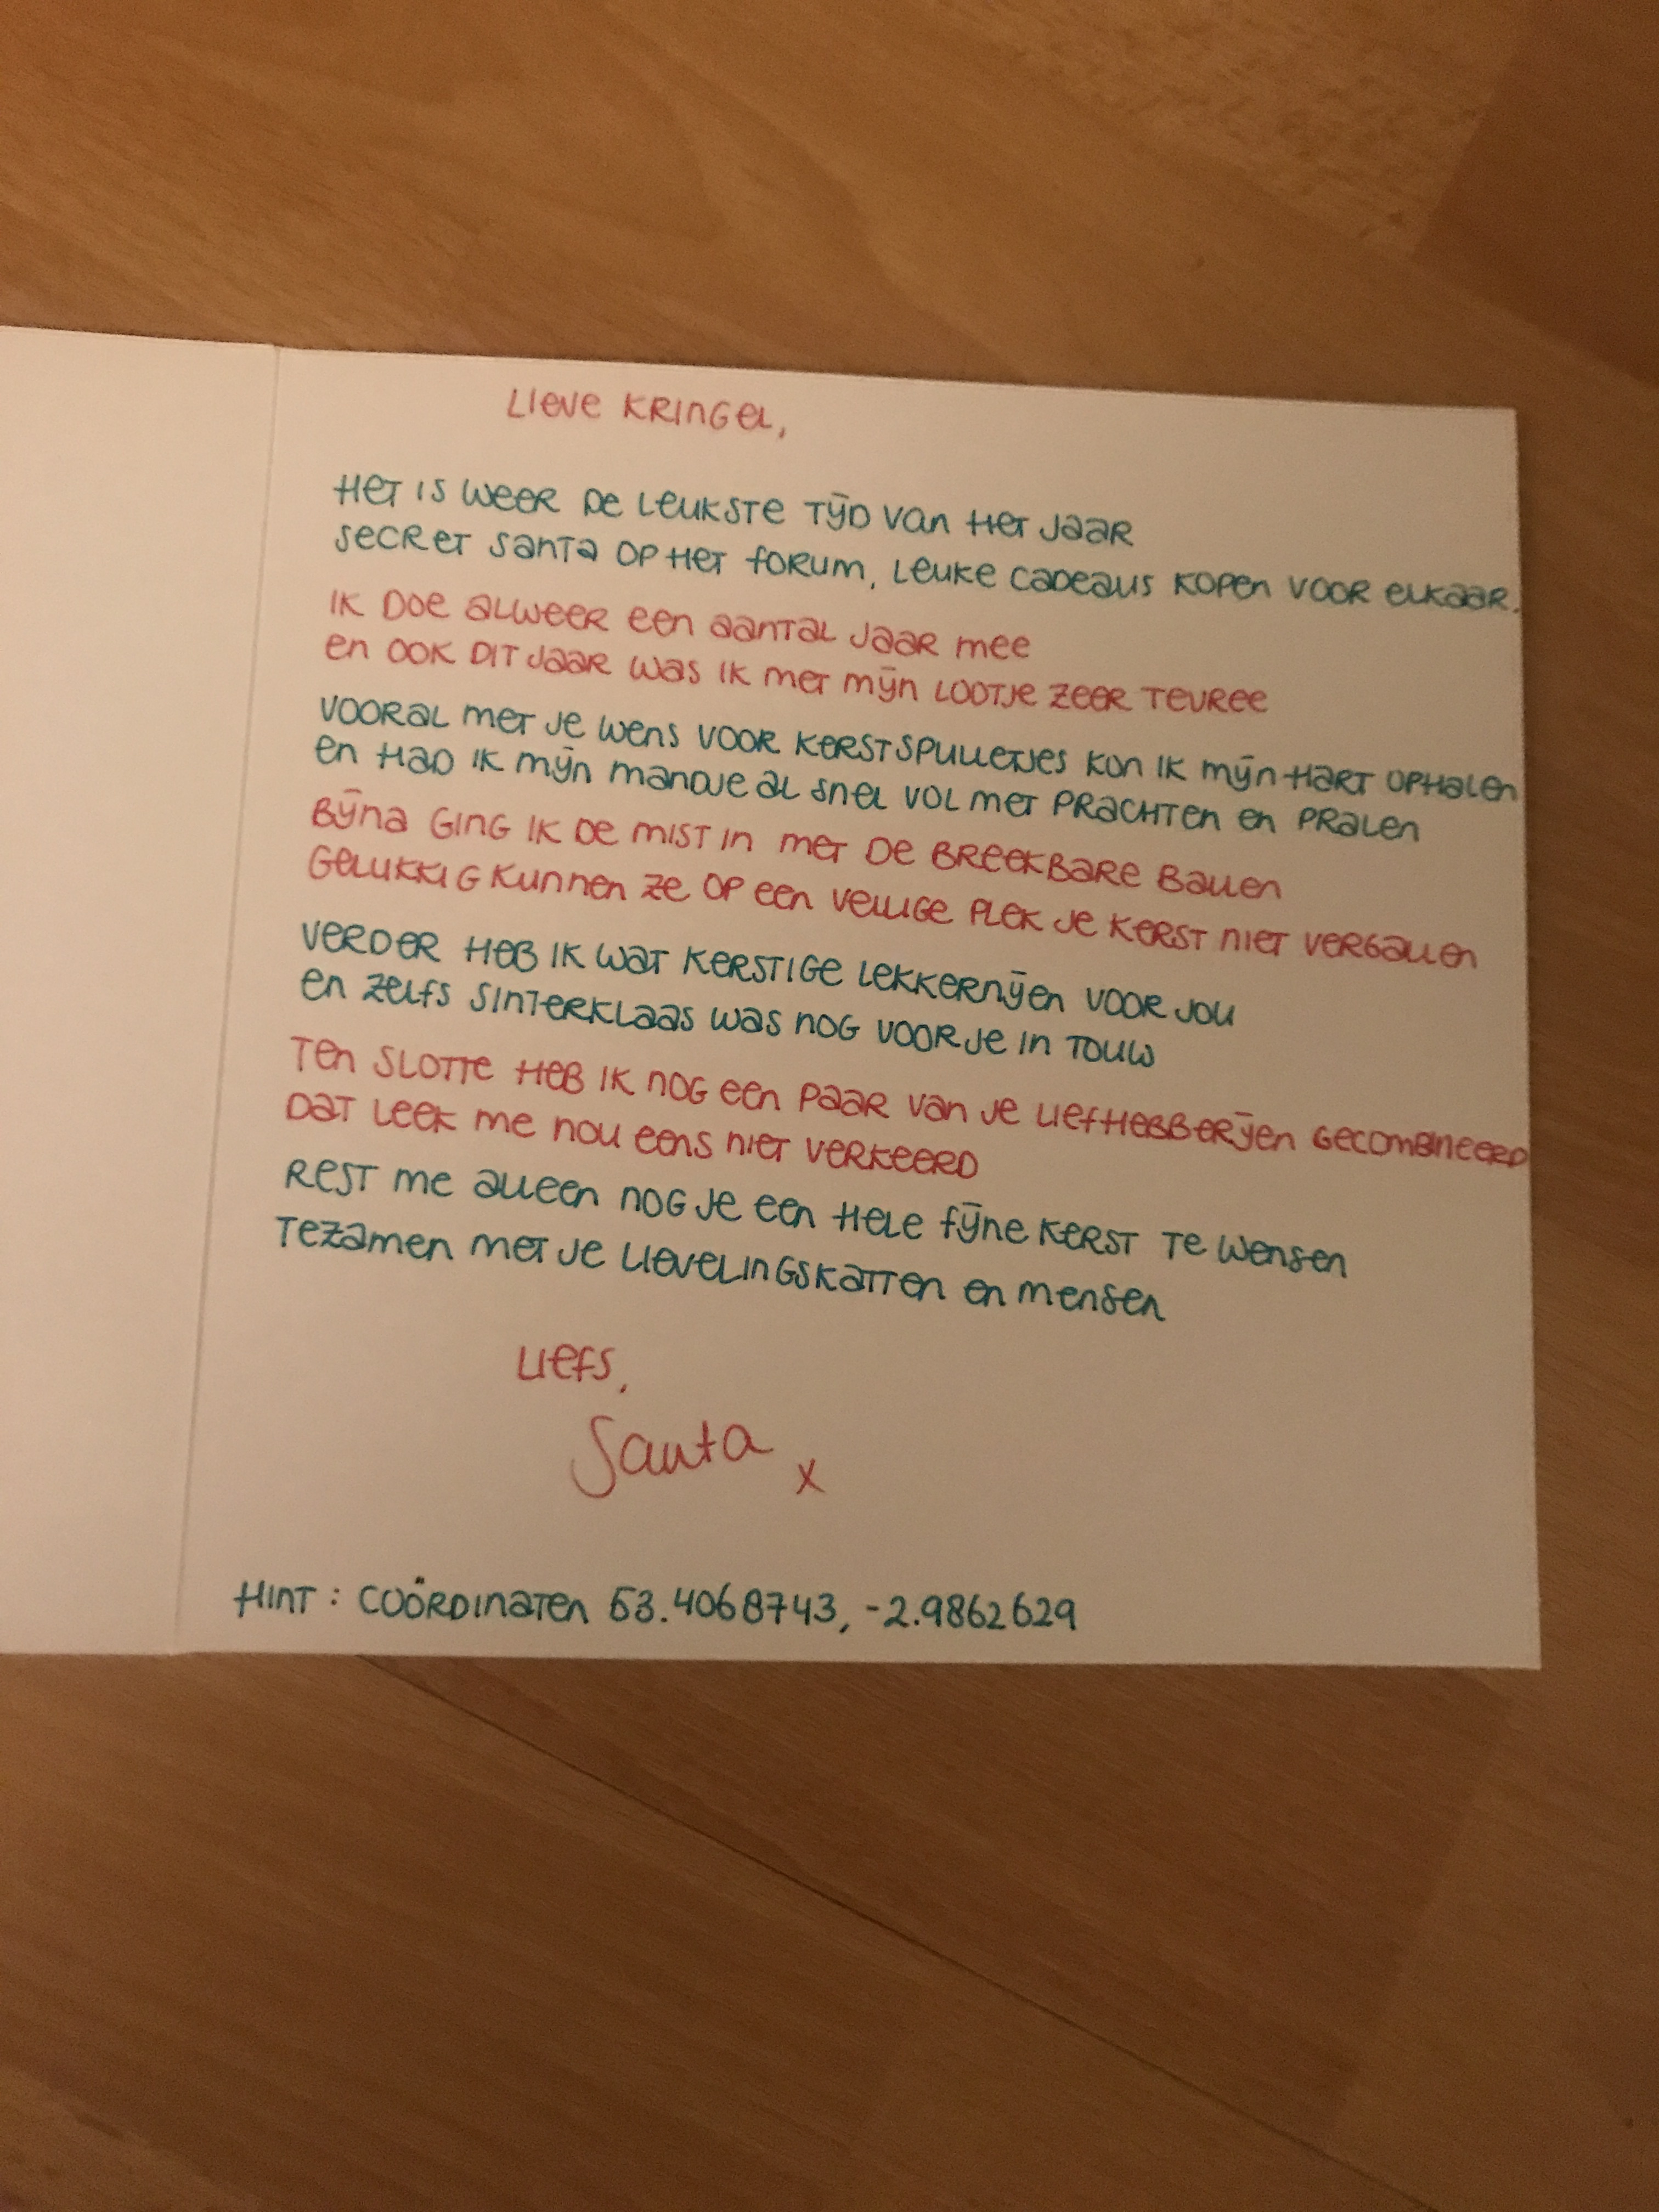 Lieve Kringel,
Het is weer de leukste tijd van het jaar
Secret Santa op het forum, leuke cadeaus kopen voor elkaar.
Ik doe alweer een aantal jaar mee
en ook dit jaar was ik met mijn lootje zeer tevree
Vooral met je wens voor kerstspulletjes kon ik mijn hart ophalen
en had ik mijn mandje al snel vol met prachten en pralen
Bijna ging ik de mist in met de breekbare ballen
Gelukkig kunnen ze op een veilige plek je kerst niet vergallen
Verder heb ik wat kerstige lekkernijen voor jou
en zelfs Sinterklaas was nog voor je in touw
Ten slotte heb ik nog een paar van je liefhebberijen gecombineerd
Dat leek me nou eens niet verkeerd
Rest me alleen nog je een hele fijne kerst te wensen
Tezamen met je lievelingskatten en mensen
Liefs,
Santa x
Hint: coördinaten 53.4068743, -2.9862629